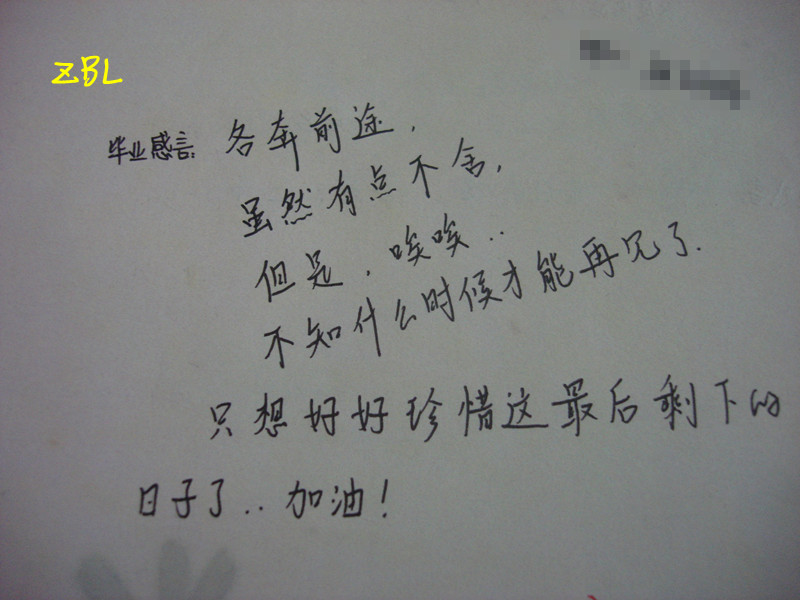 ZBL
毕业感言：各奔前途，
虽然有点不舍，
但是，唉唉..
不知什么时候才能再见了.
只想好好珍惜这最后剩下的
日子了..加油！